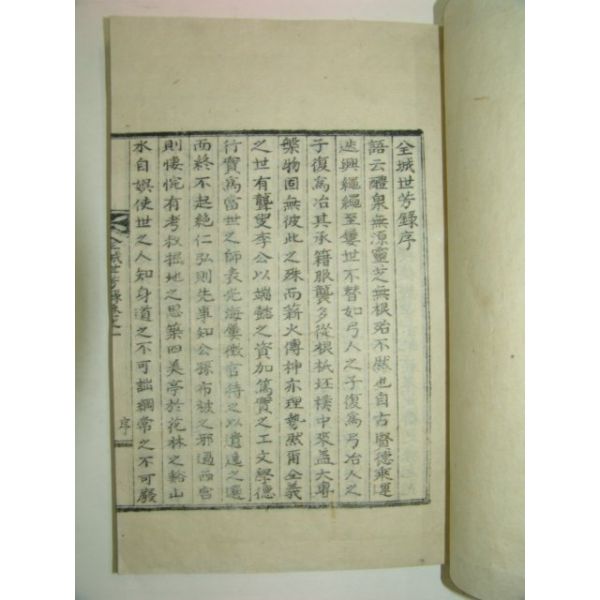 全城世芳錄序
語云醴泉無源靈芝無根殆不然也自古賢德乘運
迭興繩繩至屢世不替如弓人之子復爲弓冶人之
子復爲冶其承籍服襲多從根柢坯樸中來蓋大專
槃物固無彼此之殊而薪火傳神亦理勢然爾全義
之世有聾叟李公以端懿之資加篤實之工文學德
行實爲當世之師表光海屢徵官待之以遺逸之選
而終不起絶仁弘則先事知公孫布被之邪過西宮
則悽惋有考叔掘地之思築四美亭於花林之谿山
水自娛使世之人知身道之不可詘綱常之不可廢
全城世芳錄卷之一
序